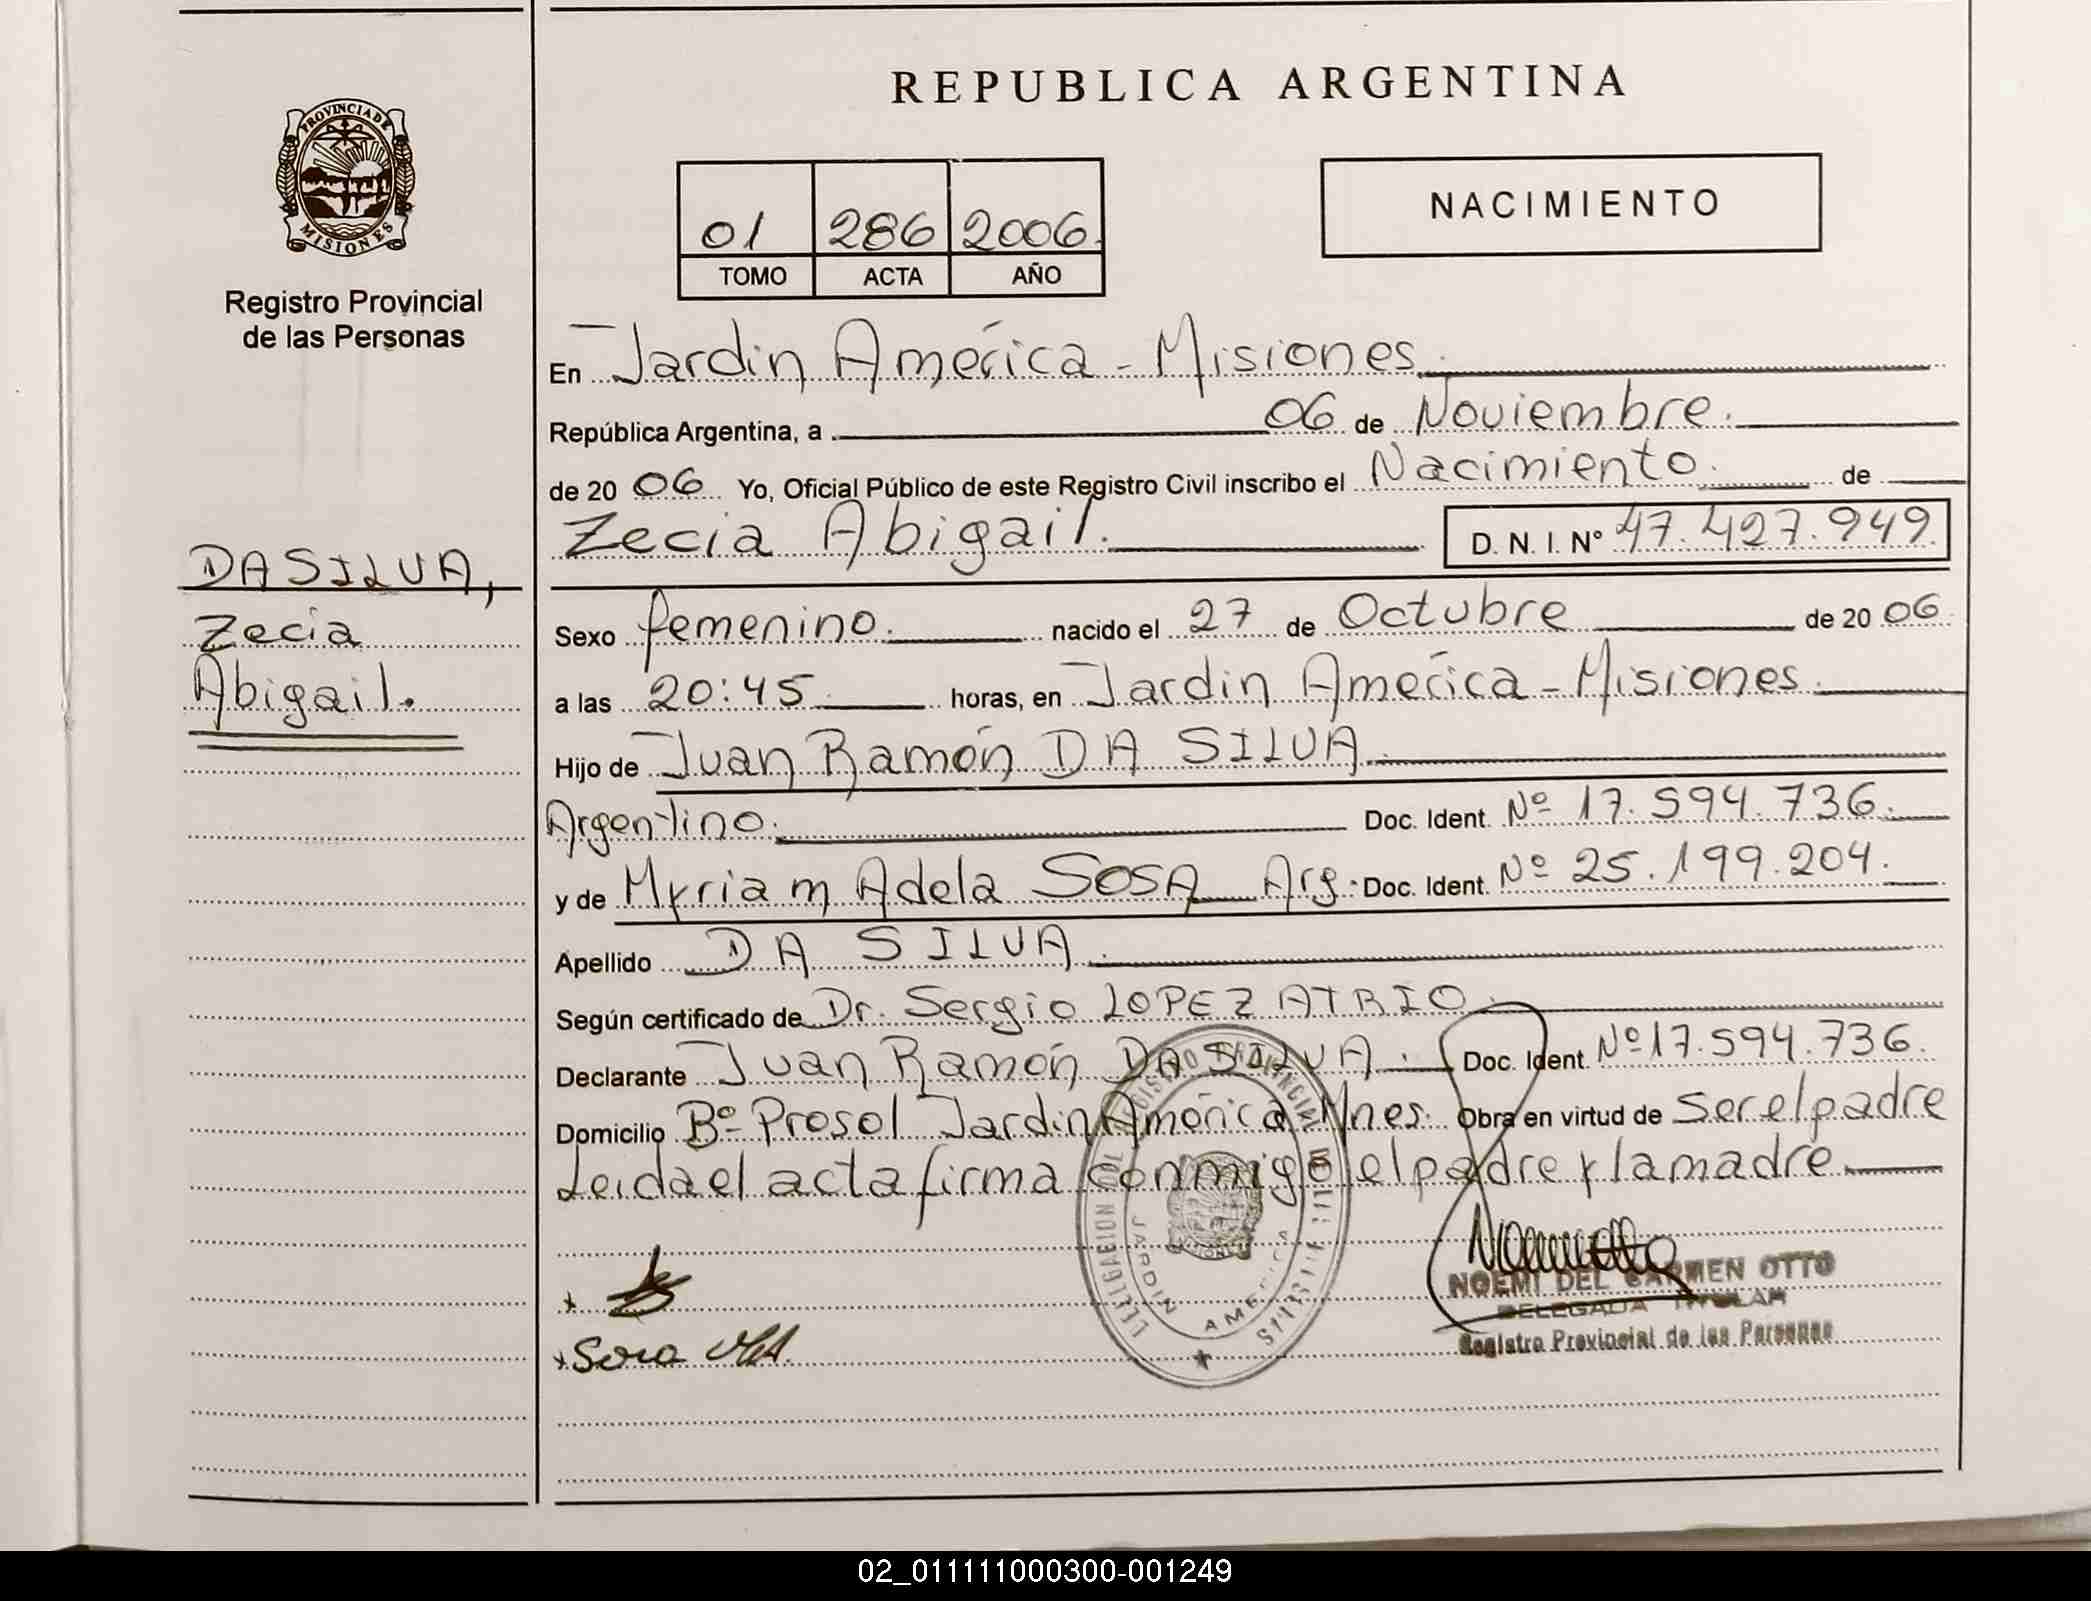 REPUBLICA ARGENTINA
PROVINCIA DE MISIONES
Registro Provincial
de las Personas
01 286 2006.
TOMO ACTA AÑO
NACIMIENTO
En Jardin América - Misiones.
República Argentina, a 06 de Noviembre.
de 20 06 Yo, Oficial Público de este Registro Civil inscribo el Nacimiento. de
Zecia Abigail. D. N. I. Nº 47.427.949
DA SILVA,
Zecia
Abigail.
Sexo femenino. nacido el 27 de Octubre de 20 06.
a las 20:45 horas, en Jardin América - Misiones.
Hijo de Juan Ramón DA SILVA.
Argentino. Doc. Ident. Nº 17.594.736.
y de Myriam Adela SOSA Arg. Doc. Ident. Nº 25.199.204.
Apellido DA SILVA.
Según certificado de Dr. Sergio LOPEZ ATRIO.
Declarante Juan Ramón DA SILVA. Doc. Ident. Nº 17.594.736.
Domicilio Bº Prosol Jardin América Mnes. Obra en virtud de ser el padre
Leida el acta firma conmigo el padre y la madre
DELEGACION DEL REGISTRO PROVINCIAL DE LAS
JARDIN AMERICA
NOEMI DEL CARMEN OTTO
DELEGADA TITULAR
Registro Provincial de las Personas
x
x Sosa
02_011111000300-001249